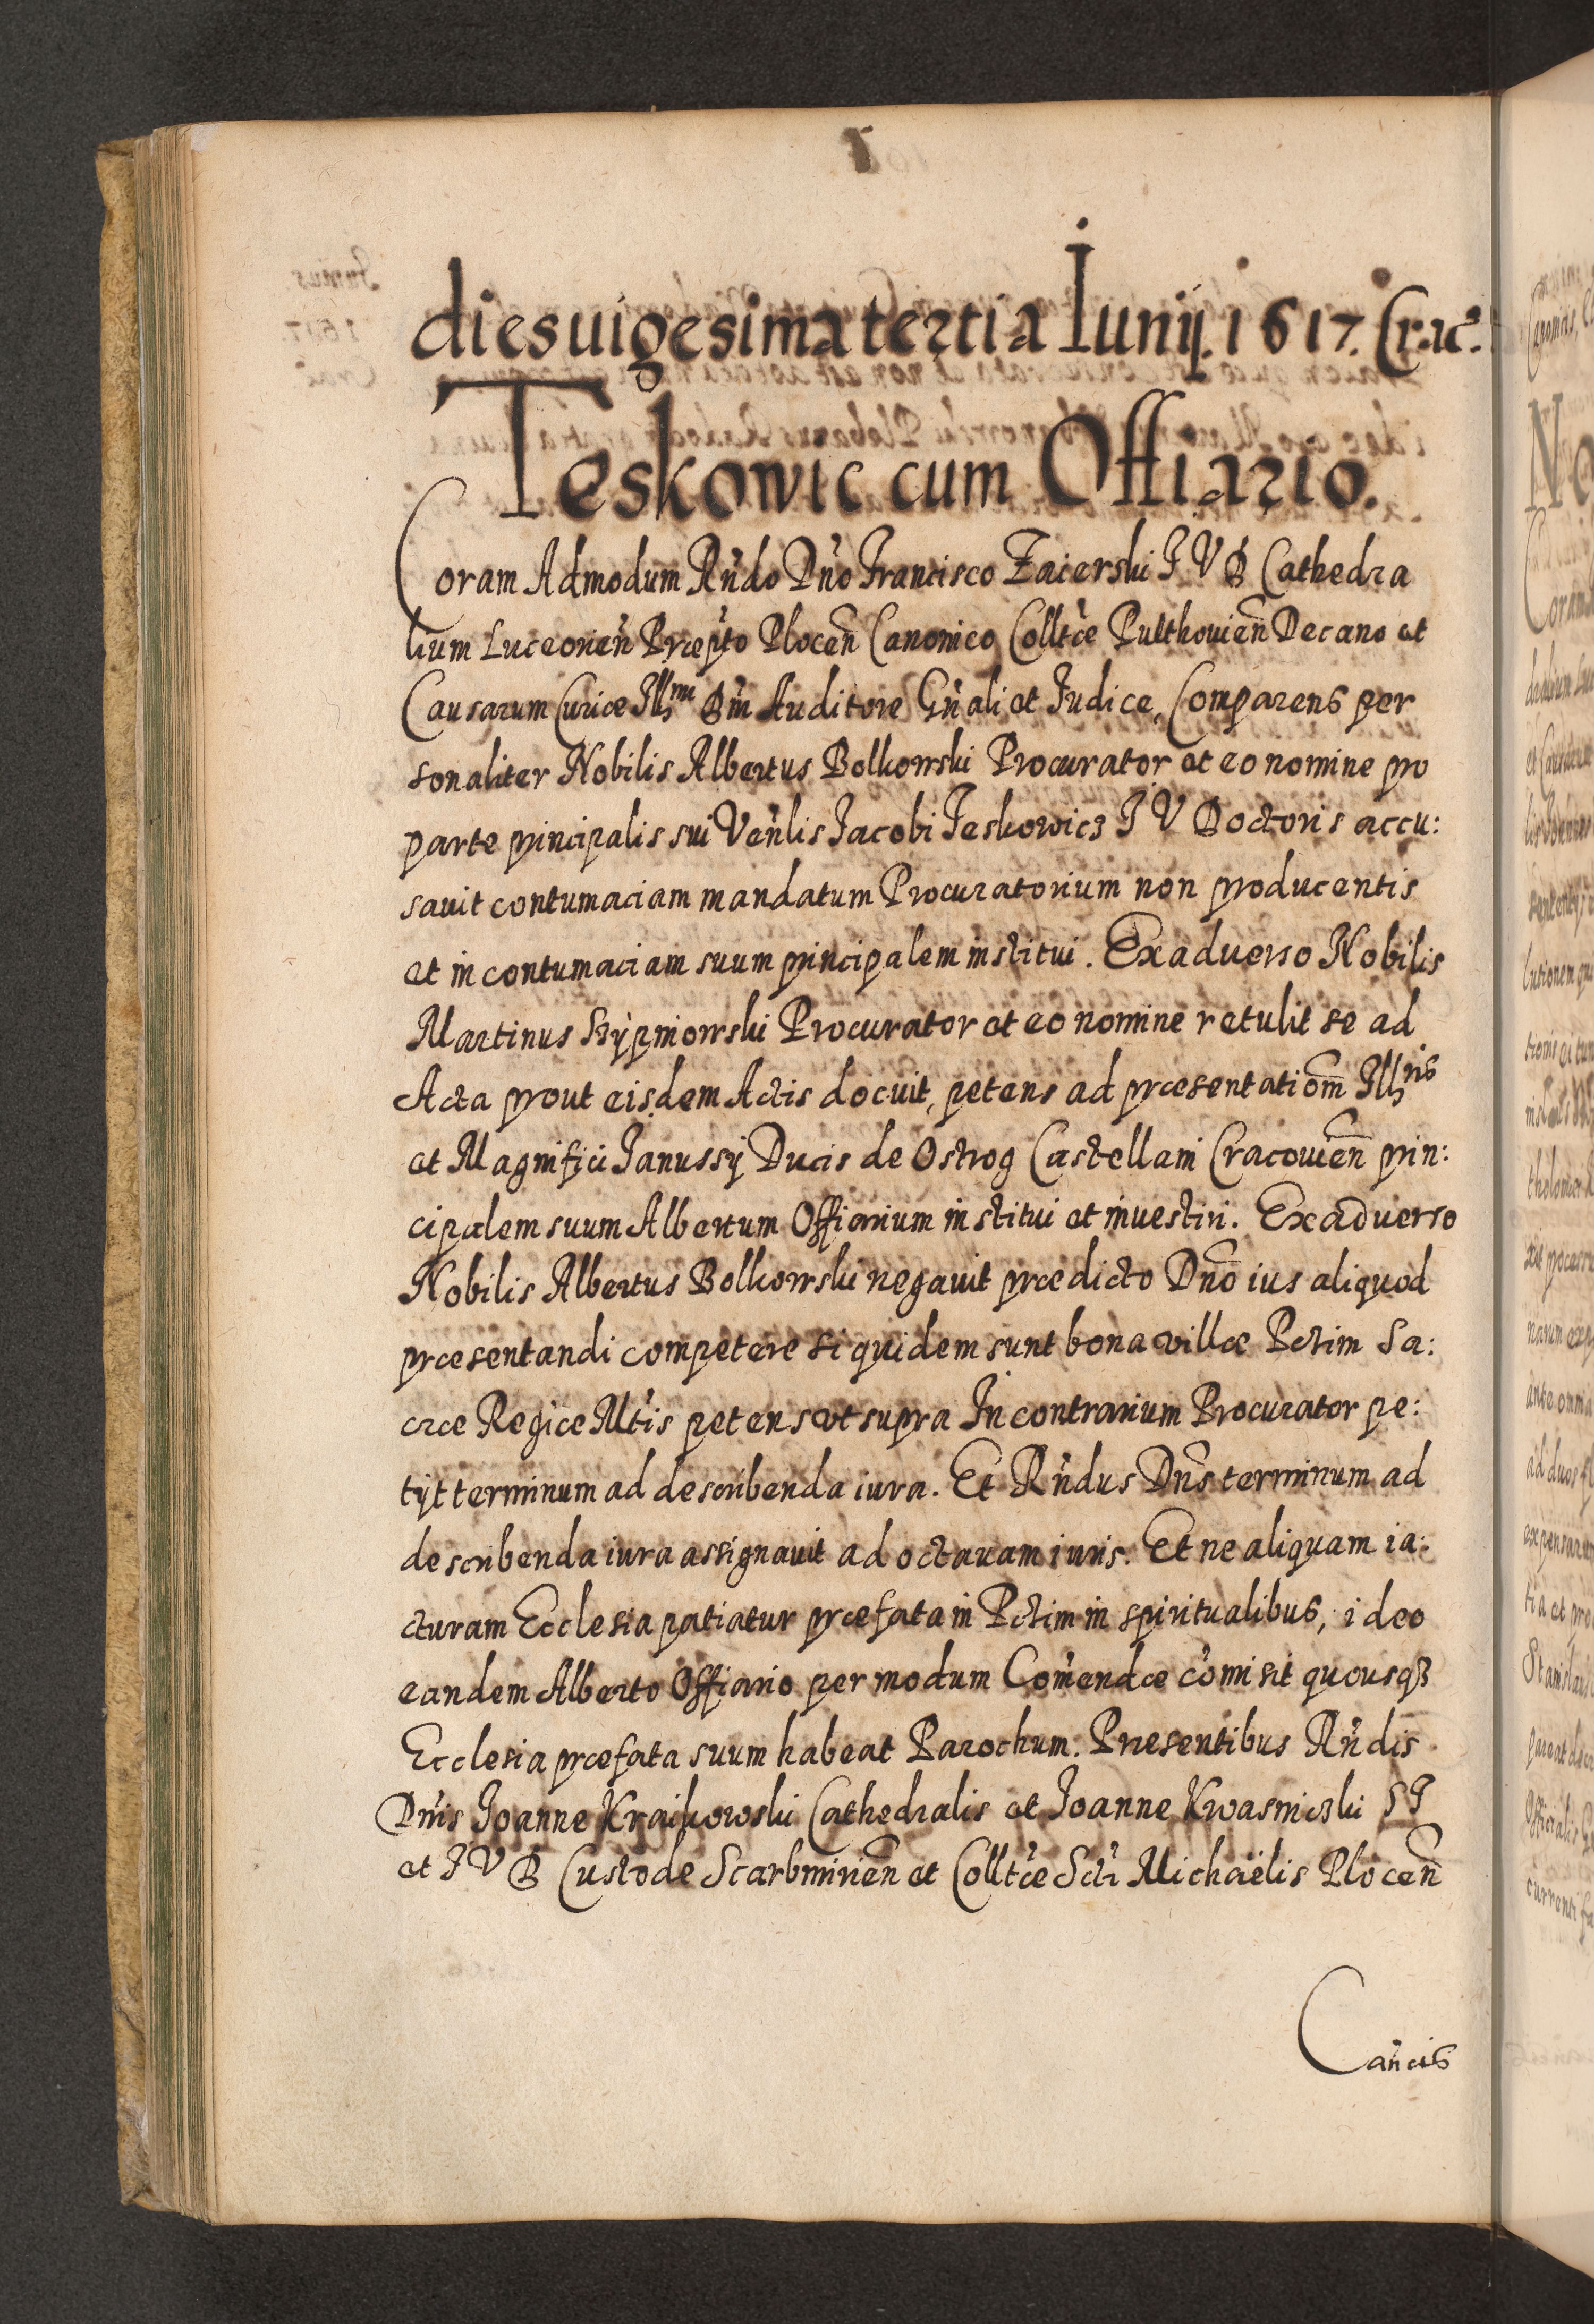 dies uigesima tertia Iunij. 1617. Crac:
Teskowic cum Offiario.
Coram Admodum Rñdo Dño Francisco Zaierski I V D Cathedra
lium Luceorieñ Præpto Ploceñ Canonico Colltæ Pulthouieñ Decano et
Causarum Curiæ Illmi Dni Auditore Gñali et Iudice, Comparens per
sonaliter Nobilis Albertus Bolkowski Procurator et eo nomine pro
parte principalis sui Veñlis Iacobi Ieskowicz I V Doctoris accu:
sauit contumaciam mandatum Procuratorium non producentis
et in contumaciam suum principalem institui. Ex aduerso Nobilis
Martinus Szypniowski Procurator et eo nomine retulit se ad
Acta prout eisdem Actis docuit, petens ad præsentatiom̃ Illris
et Magnifici Ianussij Ducis de Ostrog Castellani Cracouieñ prin:
cipalem suum Albertum Offiarium institui et inuestiri. Ex aduerso
Nobilis Albertus Bolkowski negauit prædicto Dño ius aliquod
præsentandi competere si quidem sunt bona villæ Rctim Sa:
cræ Regiæ Mtis petens vt supra In contrarium Procurator pe:
tijt terminum ad describenda iura. Et Rñdus Dñs terminum ad
describenda iura assignauit ad octauam iuris. Et ne aliquam ia:
cturam Ecclesia patiatur præfata in Rctim in spiritualibus, ideo
eandem Alberto Offiario per modum Com̃endæ com̃isit quousqȝ
Ecclesia præfata suum habeat Parochum. Præsentibus Rñdis
Dñis Ioanne Kraikowski Cathedralis et Ioanne Kwasniczki ST
et I V D Custode Scarbmirieñ et Colltæ Scti Michaëlis Ploceñ
Cañcis